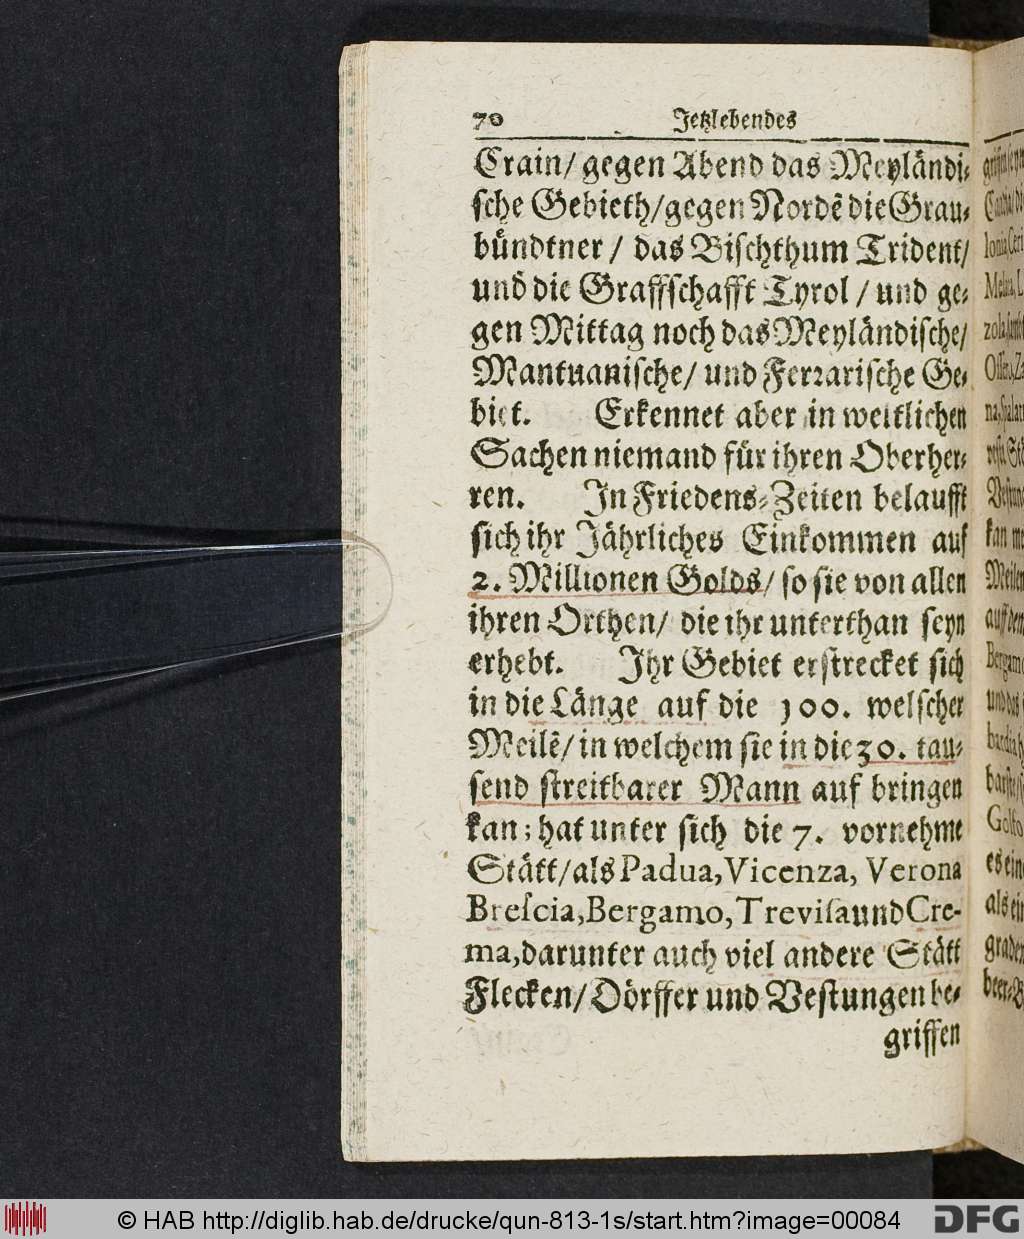 70 Jetzlebendes
Crain/ gegen Abend das Meyländi-
sche Gebieth/gegen Nordẽ die Grau-
bündtner / das Bischthum Trident/
und die Graffschafft Tyrol / und ge-
gen Mittag noch das Meyländische/
Mantuanische/ und Ferrarische Ge-
biet. Erkennet aber in weltlichen
Sachen niemand für ihren Oberher-
ren. In Friedens-Zeiten belaufft
sich ihr Jährliches Einkommen auf
2. Millionen Golds/ so sie von allen
ihren Orthen/ die ihr unterthan seyn
erhebt. Ihr Gebiet erstrecket sich
in die Länge auf die 300. welscher
Meilẽ/ in welchem sie in die 30. tau-
send streitbarer Mann auf bringen
kan; hat unter sich die 7. vornehme
Stätt/als Padua, Vicenza, Verona
Brescia, Bergamo, Trevisa und Cre-
ma, darunter auch viel andere Stätt
Flecken/ Dörffer und Vestungen be-
griffen
© HAB http://diglib.hab.de/drucke/qun-813-1s/start.htm?image=00084
DFG